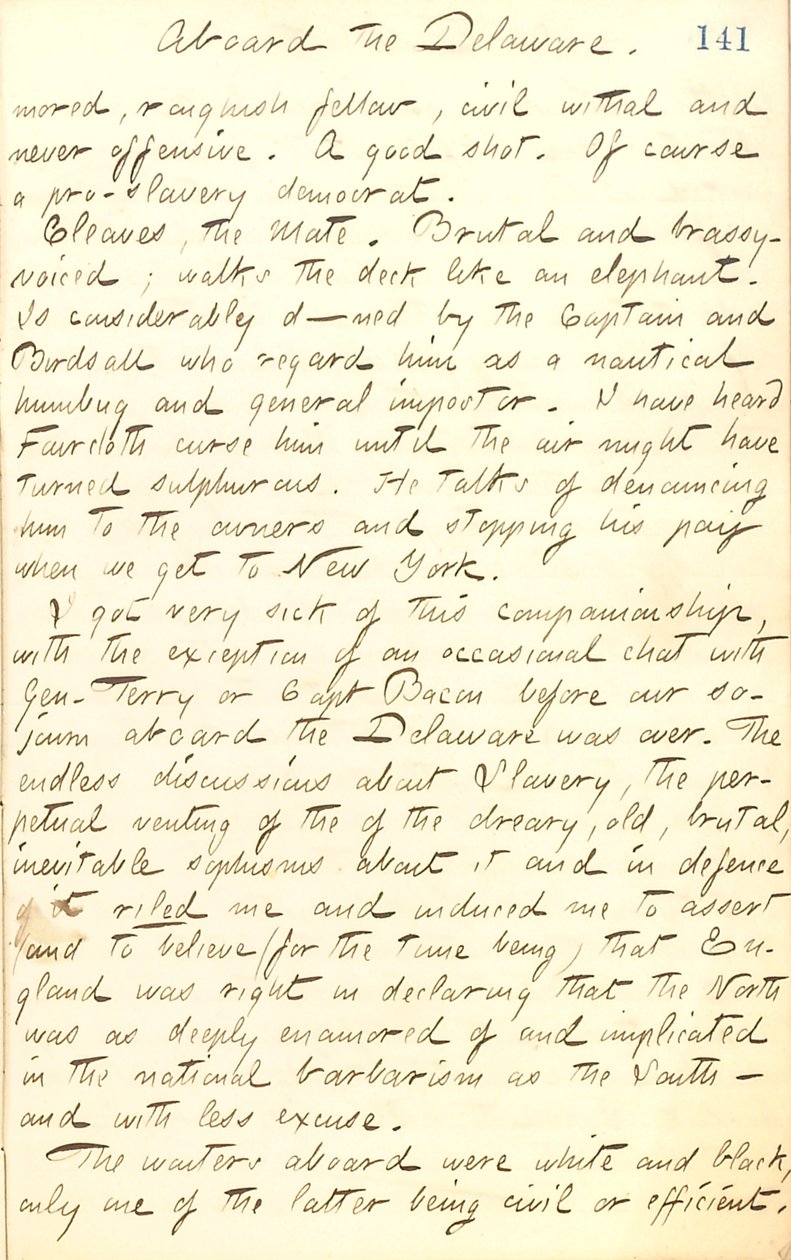 Aboard the Delaware. 141
mored, roughish fellow, civil withal and
never offensive. A good shot. Of course
a pro-slavery democrat.
Cleaves, the Mate. Brutal and brassy-
voiced; walks the deck like an elephant.
Is considerably d—ned by the Captain and
Birdsall who regard him as a nautical
humbug and general impostor. I have heard
Faircloth curse him until the air might have
turned sulphurous. He talks of denouncing
him to the owners and stopping his pay
when we get to New York.
I got very sick of this companionship,
with the exception of an occasional chat with
Gen. Terry or Capt Bacon before our so-
journ aboard the Delaware was over. The
endless discussions about Slavery, the per-
petual venting of the of the dreary, old, brutal,
inevitable sophisms about it and in defence
of it riled me and induced me to assert
(and to believe (for the time being) that En-
gland was right in declaring that the North
was as deeply enamored of and implicated
in the national barbarism as the South —
and with less excuse.
The waiters aboard were white and black,
only one of the latter being civil or efficient.